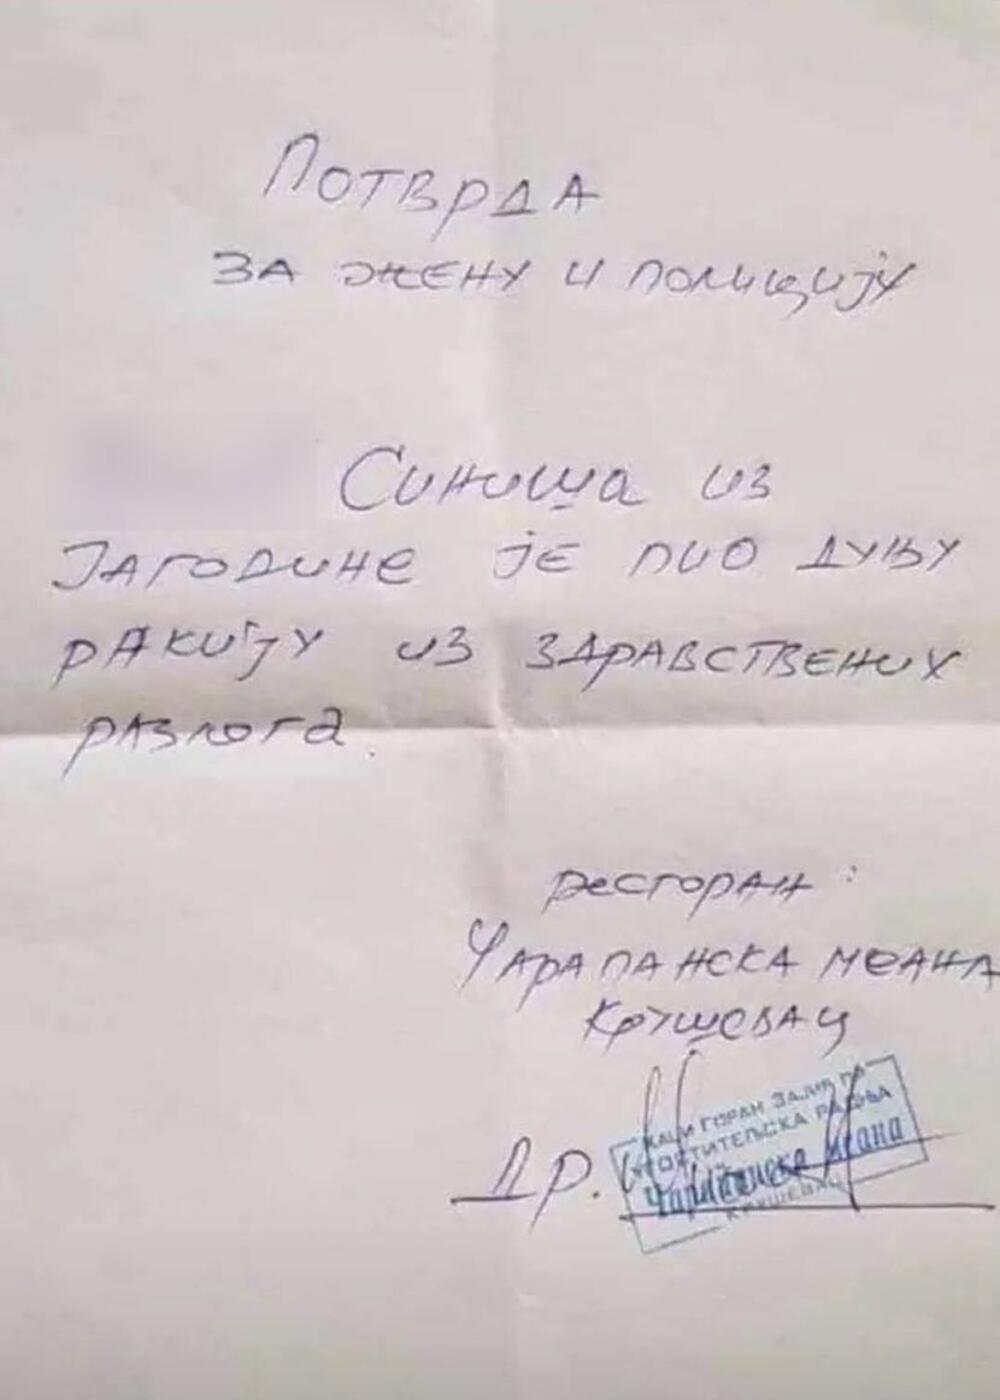 Потврда
за жену и полицију
Синиша из
Јагодине је пио дуњу
ракију из здравствених
разлога.
ресторан:
Чарапанска меана
Крушевац
ГОРАН
УГОСТИТЕЉСКА РАДЊА
Чарапанска меана
КРУШЕВАЦ
Др.